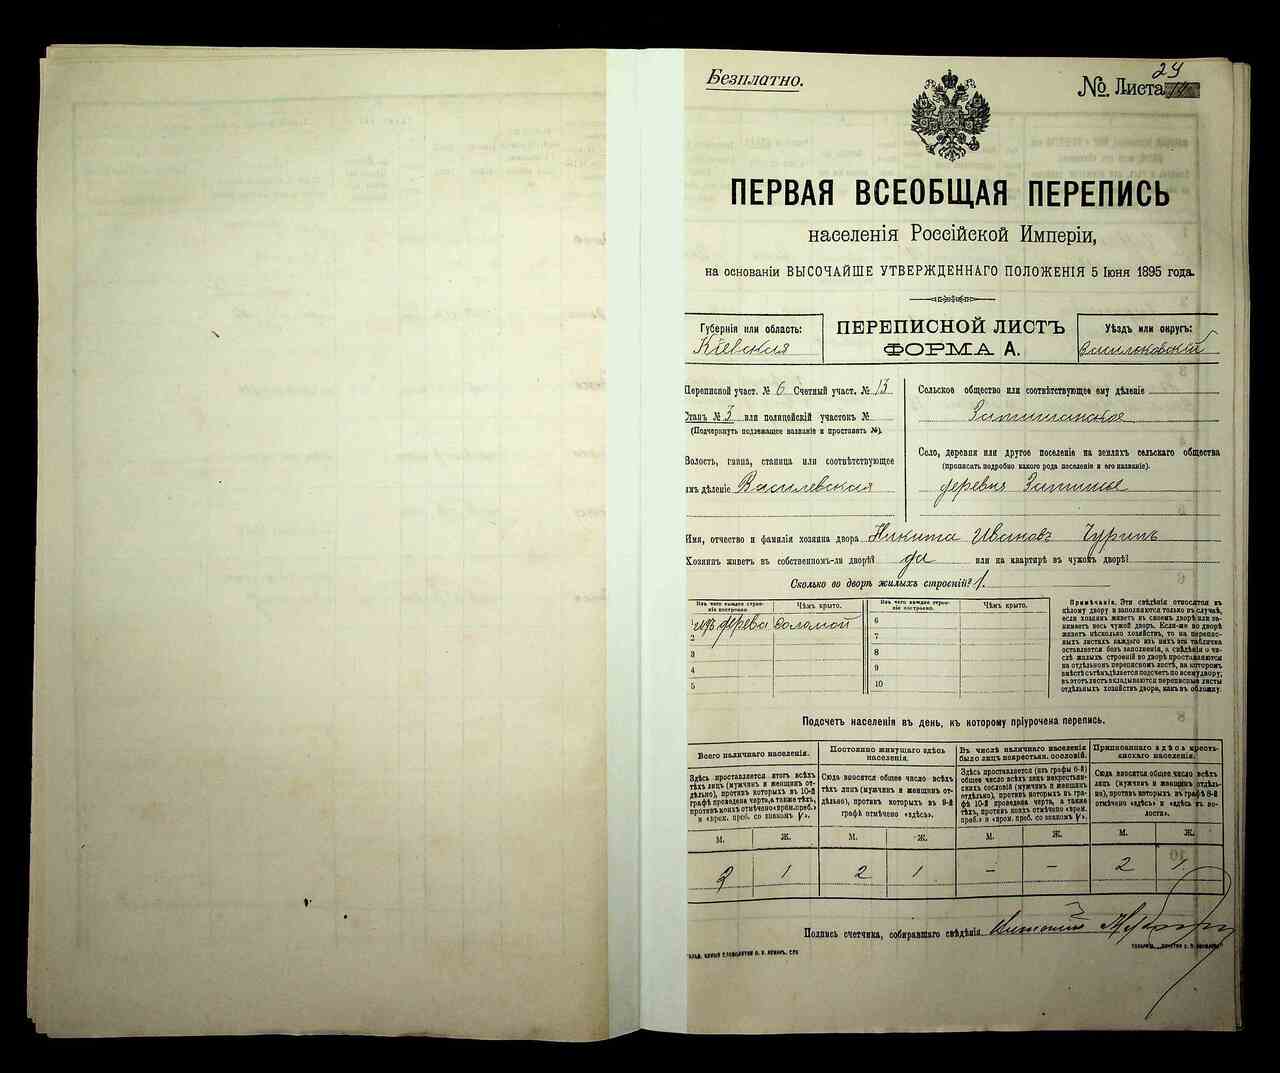 Безплатно.
№ Листа 24
ПЕРВАЯ ВСЕОБЩАЯ ПЕРЕПИСЬ
населенія Россійской Имперіи,
на основаніи ВЫСОЧАЙШЕ УТВЕРЖДЕННАГО ПОЛОЖЕНІЯ 5 Іюня 1895 года.
Губернія или область:
Кіевская
ПЕРЕПИСНОЙ ЛИСТЪ
ФОРМА А.
Уѣздъ или округъ:
Васильковскій
Переписной участ. № 6 Счетный участ. № 13
Станъ № 3 или полицейскій участокъ №
(Подчеркнуть подлежащее названіе и проставить №).
Волость, гмина, станица или соотвѣтствующее
имъ дѣленіе Василевская
Сельское общество или соотвѣтствующее ему дѣленіе
Затишанское
Село, деревня или другое поселеніе на земляхъ сельскаго общества
(прописать подробно какого рода поселеніе и его названіе).
деревня Затишье
Имя, отчество и фамилія хозяина двора Никита Ивановъ Чурипъ
Хозяинъ живетъ въ собственномъ-ли дворѣ? да или на квартирѣ въ чужомъ дворѣ?
Сколько во дворѣ жилыхъ строеній? 1.
Изъ чего каждое строеніе построено.
Чѣмъ крыто.
Изъ чего каждое строеніе построено.
Чѣмъ крыто.
1 изъ дерева соломой
2
3
4
5
6
7
8
9
10
Примѣчаніе. Эти свѣдѣнія относятся къ
цѣлому двору и заполняются только въ случаѣ,
если хозяинъ живетъ въ своемъ дворѣ или за-
нимаетъ весь чужой дворъ. Если-же во дворѣ
живетъ нѣсколько хозяйствъ, то на перепис-
ныхъ листахъ каждаго изъ нихъ эта табличка
оставляется безъ заполненія, а свѣдѣнія о чи-
слѣ жилыхъ строеній во дворѣ проставляются
на отдѣльномъ переписномъ листѣ, на которомъ
вмѣстѣ съ тѣмъ дѣлается подсчетъ по всему двору;
въ этотъ листъ вкладываются переписные листы
отдѣльныхъ хозяйствъ двора, какъ въ обложку.
Подсчетъ населенія въ день, къ которому пріурочена перепись.
Всего наличнаго населенія.
Постоянно живущаго здѣсь
населенія.
Въ числѣ наличнаго населенія
было лицъ некрестьян. сословій.
Приписаннаго здѣсь кресть-
янскаго населенія.
Здѣсь проставляется итогъ всѣхъ
лицъ (мужчинъ и женщинъ от-
дѣльно), противъ которыхъ въ 10-й
графѣ проведена черта, а также тѣхъ,
противъ коихъ отмѣчено «врем. преб.»
и «врем. преб. со знакомъ V».
Сюда вносятся общее число всѣхъ
тѣхъ лицъ (мужчинъ и женщинъ от-
дѣльно), противъ которыхъ въ 9-й
графѣ отмѣчено «здѣсь».
Здѣсь проставляется (изъ графы 6-й)
общее число всѣхъ лицъ некрестьян-
скихъ сословій (мужчинъ и женщинъ
отдѣльно), противъ которыхъ въ гра-
фѣ 10-й проведена черта, а также
тѣхъ, противъ коихъ отмѣчено «врем.
преб.» и «врем. преб. со знакомъ V».
Сюда вносятся общее число всѣхъ
лицъ (мужчинъ и женщинъ отдѣль-
но), противъ которыхъ въ графѣ 8-й
отмѣчено «здѣсь» и «здѣсь въ во-
лости».
М. Ж. М. Ж. М. Ж. М. Ж.
2 1 2 1 – – 2 1
Подпись счетчика, собиравшаго свѣдѣнія Антоній